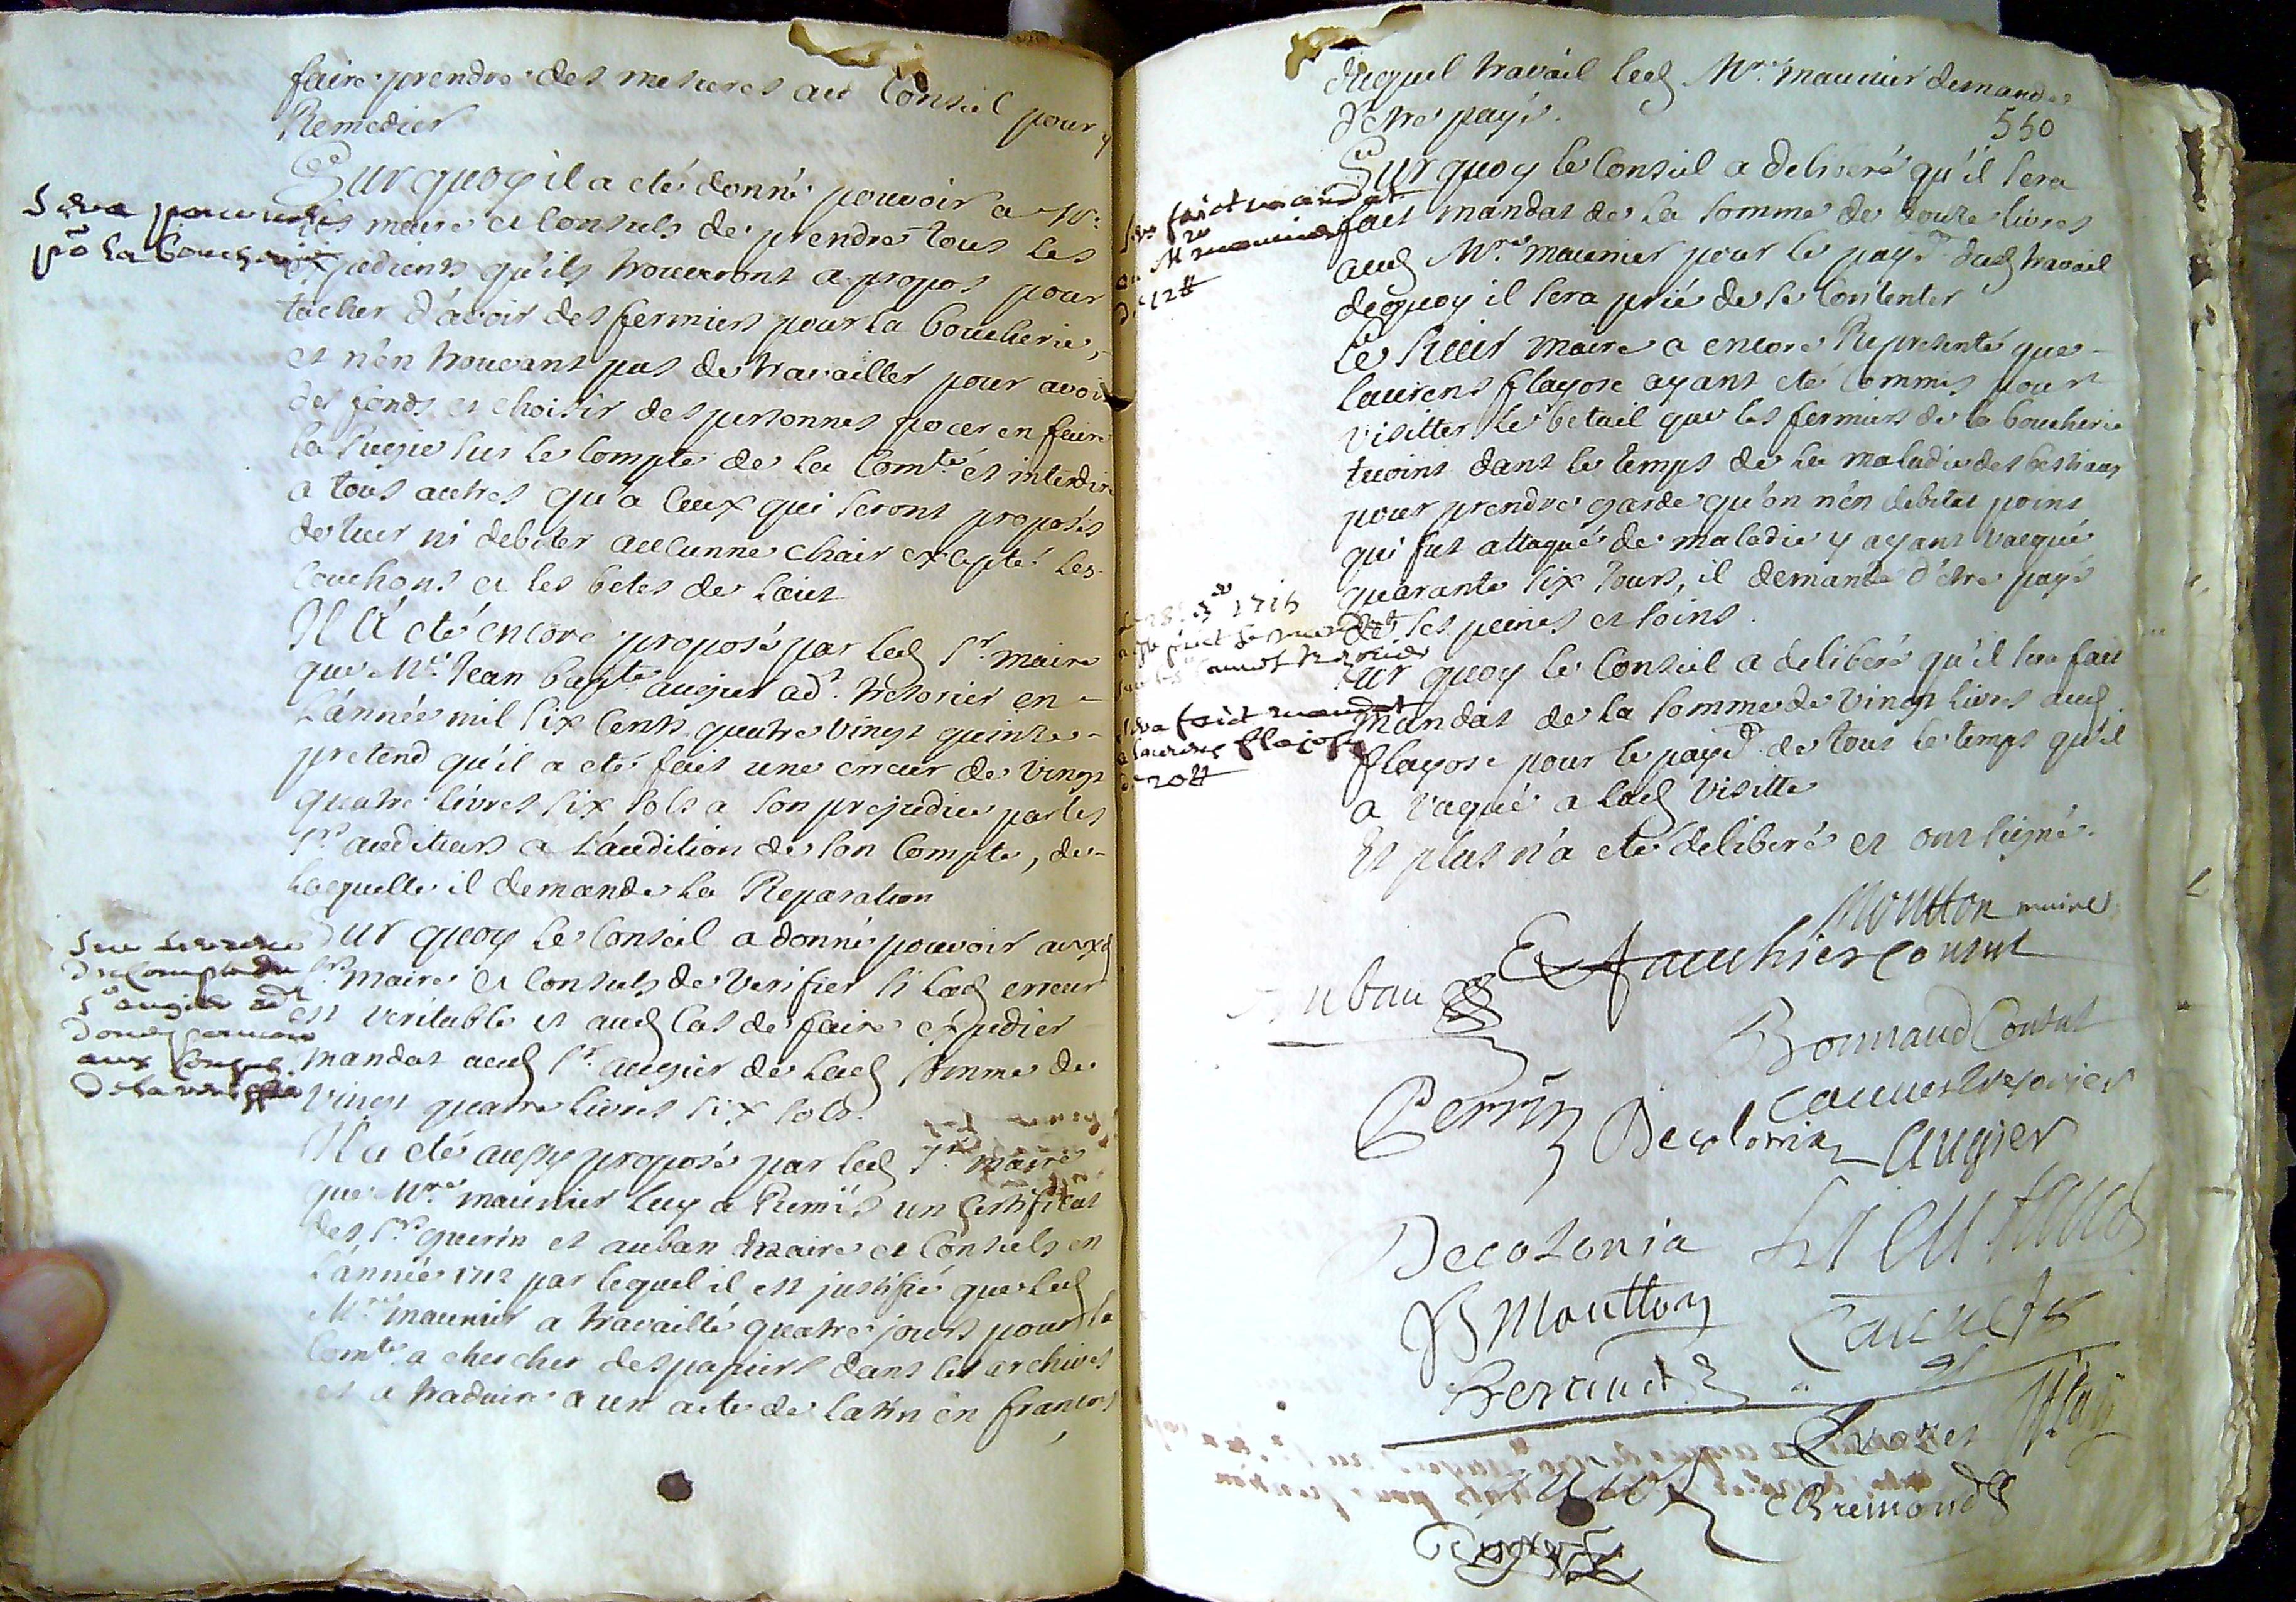 faire prendre des mesures au Conseil pour y
Remedier
Sur quoy il a eté donné pouvoir a Mrs
les maire et Consuls de prendre tous les
expedients qu'ils trouveront a propos pour
tacher d'avoir des fermiers pour la boucherie,
et n'en trouvant pas de travailler pour avoir
des fonds et choisir des personnes pour en faire
la Regie sur le Compte de la Comté et interdire
a tous autres qu'a Ceux qui seront proposés
de tuer ni debiter aucunne chair excepté les
couchons et les betes de Laict
Il a eté encore proposé par led Sr. maire
que Me Jean bapte augier adt. tresorier en
L'année mil six Cents quatre vingt quinze
pretend qu'il a eté fait une erreur de vingt
quatre livres six sols a son prejudice par les
Srs auditeurs a L'audition de son Compte, de
Laquelle il demande La Reparation
Sur quoy Le Conseil a donné pouvoir auxd
Srs maire et Consuls de verifier si Lad erreur
est veritable et aud Cas de faire expedier
mandat aud Sr. augier de Lad somme de
vingt quatre livres six sols.
Il a eté aussy proposé par led Sr. maire
que Mre maunier luy a Remis un Certificat
des Srs guerin et auban maire et Consuls en
L'année 1712 par lequel il est justifié que led
Mre maunier a travaillé quatre jours pour la
Comté a chercher des papiers dans les archives
et a traduire a un acte de latin en françois
pō la boucherie
Sr augier adt
donne
aux Consuls
duquel travail led Mre. maunier demande
d'etre payé.
550
Sur quoy le Conseil a deliberé qu'il sera
fait mandat de la somme de douze livres
aud Mre. maunier pour le payt dud travail
dequoy il sera prié de se Contenter
Le Sieur maire a encore Representé que
laurens flayose ayant eté Commis pour
visitter le betail que les fermiers de la boucherie
tuoint dans le temps de la maladie des bestiaux
pour prendre garde qu'on n'en debitat point
qui fut attaqué de maladie y ayant vacqué
quarante six Jours, il demande d'etre payé
de ses peines et soins.
Sur quoy le Conseil a deliberé qu'il sera fait
mandat de la somme de vingt livres aud
flayose pour le payt de tous le temps qu'il
a vaqué a lad visitte
Et plus n'a eté deliberé et ont signé.
faict mandat
M maunier
de 12 #
1715
faict mandat
a laurens flaiose
de 20 #
Moutton maire
Fauchier Consul
Auban
Bonnaud Consul
Cauvet tresorier
Perrin Decolonia Augier
Decolonia Lieutaud
Moutton Cauvet
Beraud
Bremond